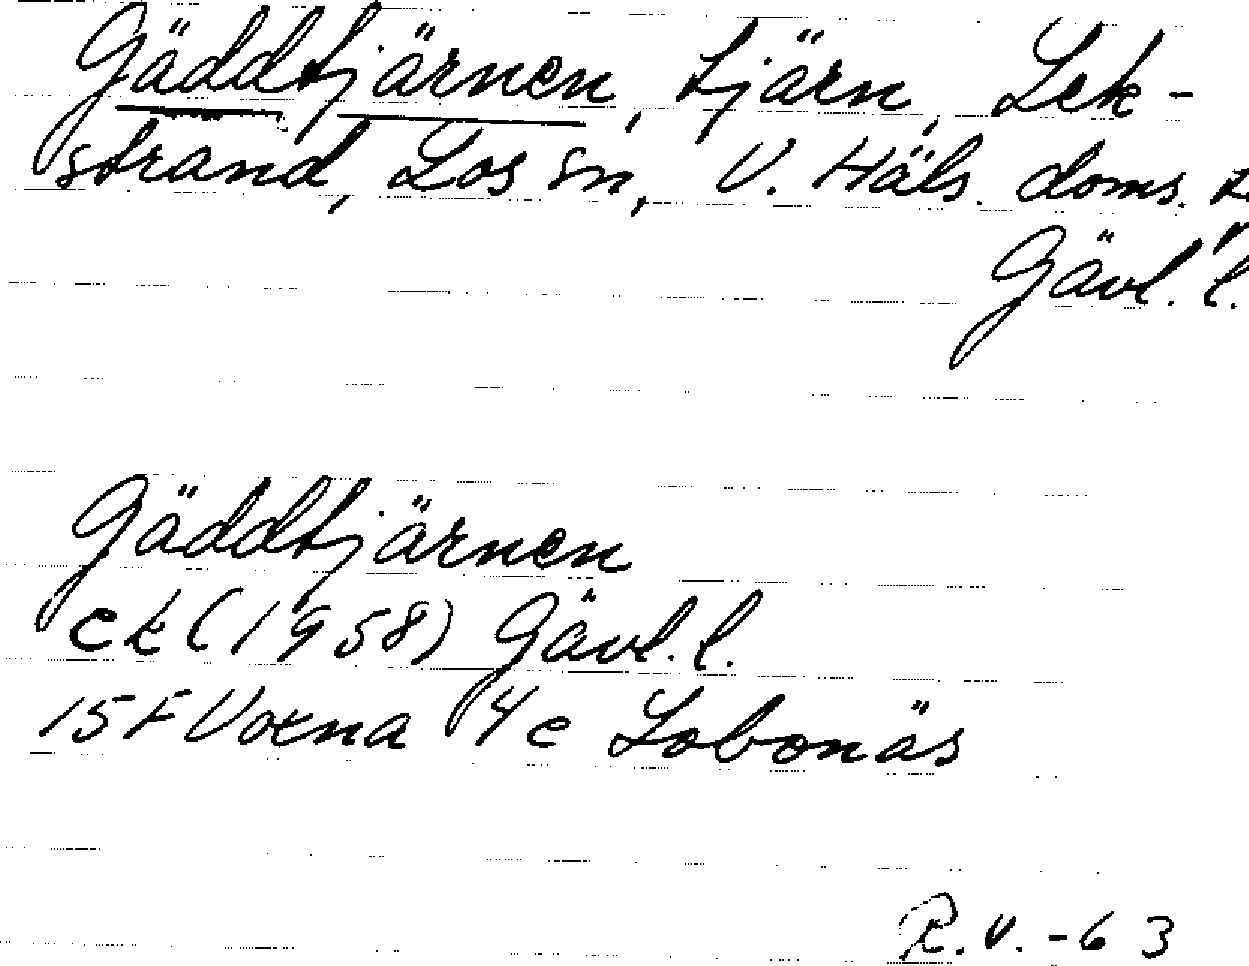 Gäddtjärnen, tjärn, Lek-
strand, Los sn, V. Häls. doms.
Gävl. l.
Gäddtjärnen
ek (1958) Gävl. l.
15F Voxna 4c Lobonäs
R.V. -63